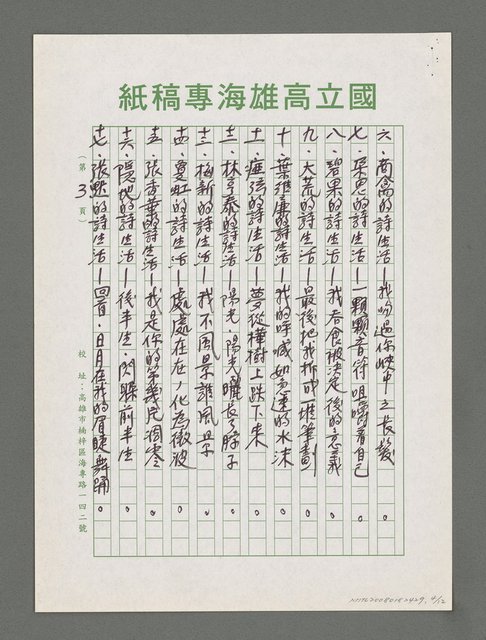 國立高雄海專專稿紙
六．商禽的詩生活—我吻過你峽中之長髮
七．朵思的詩生活—一顆顆音符咀嚼着自己
八．碧果的詩生活—我吞食被決定後的意義
九．大荒的詩生活—最後把我拆成一堆筆劃
十．葉維廉的詩生活—我的呼喊如急速的水沫
十一．瘂弦的詩生活—夢從樺樹上跌下來
十二．林亨泰的詩生活—陽光、陽光曬長了脖子
十三．梅新的詩生活—我不風景誰風景
十四．敻虹的詩生活—處處在在，化為微波
十五．張香華的詩生活—我是你的第幾度凋零
十六．隱地的詩生活—後半生，閃躲前半生
十七．張默的詩生活—回首，日月在我的眉睫舞踊
（第3頁）
校 址：高雄市楠梓區海專路一四二號
4/12